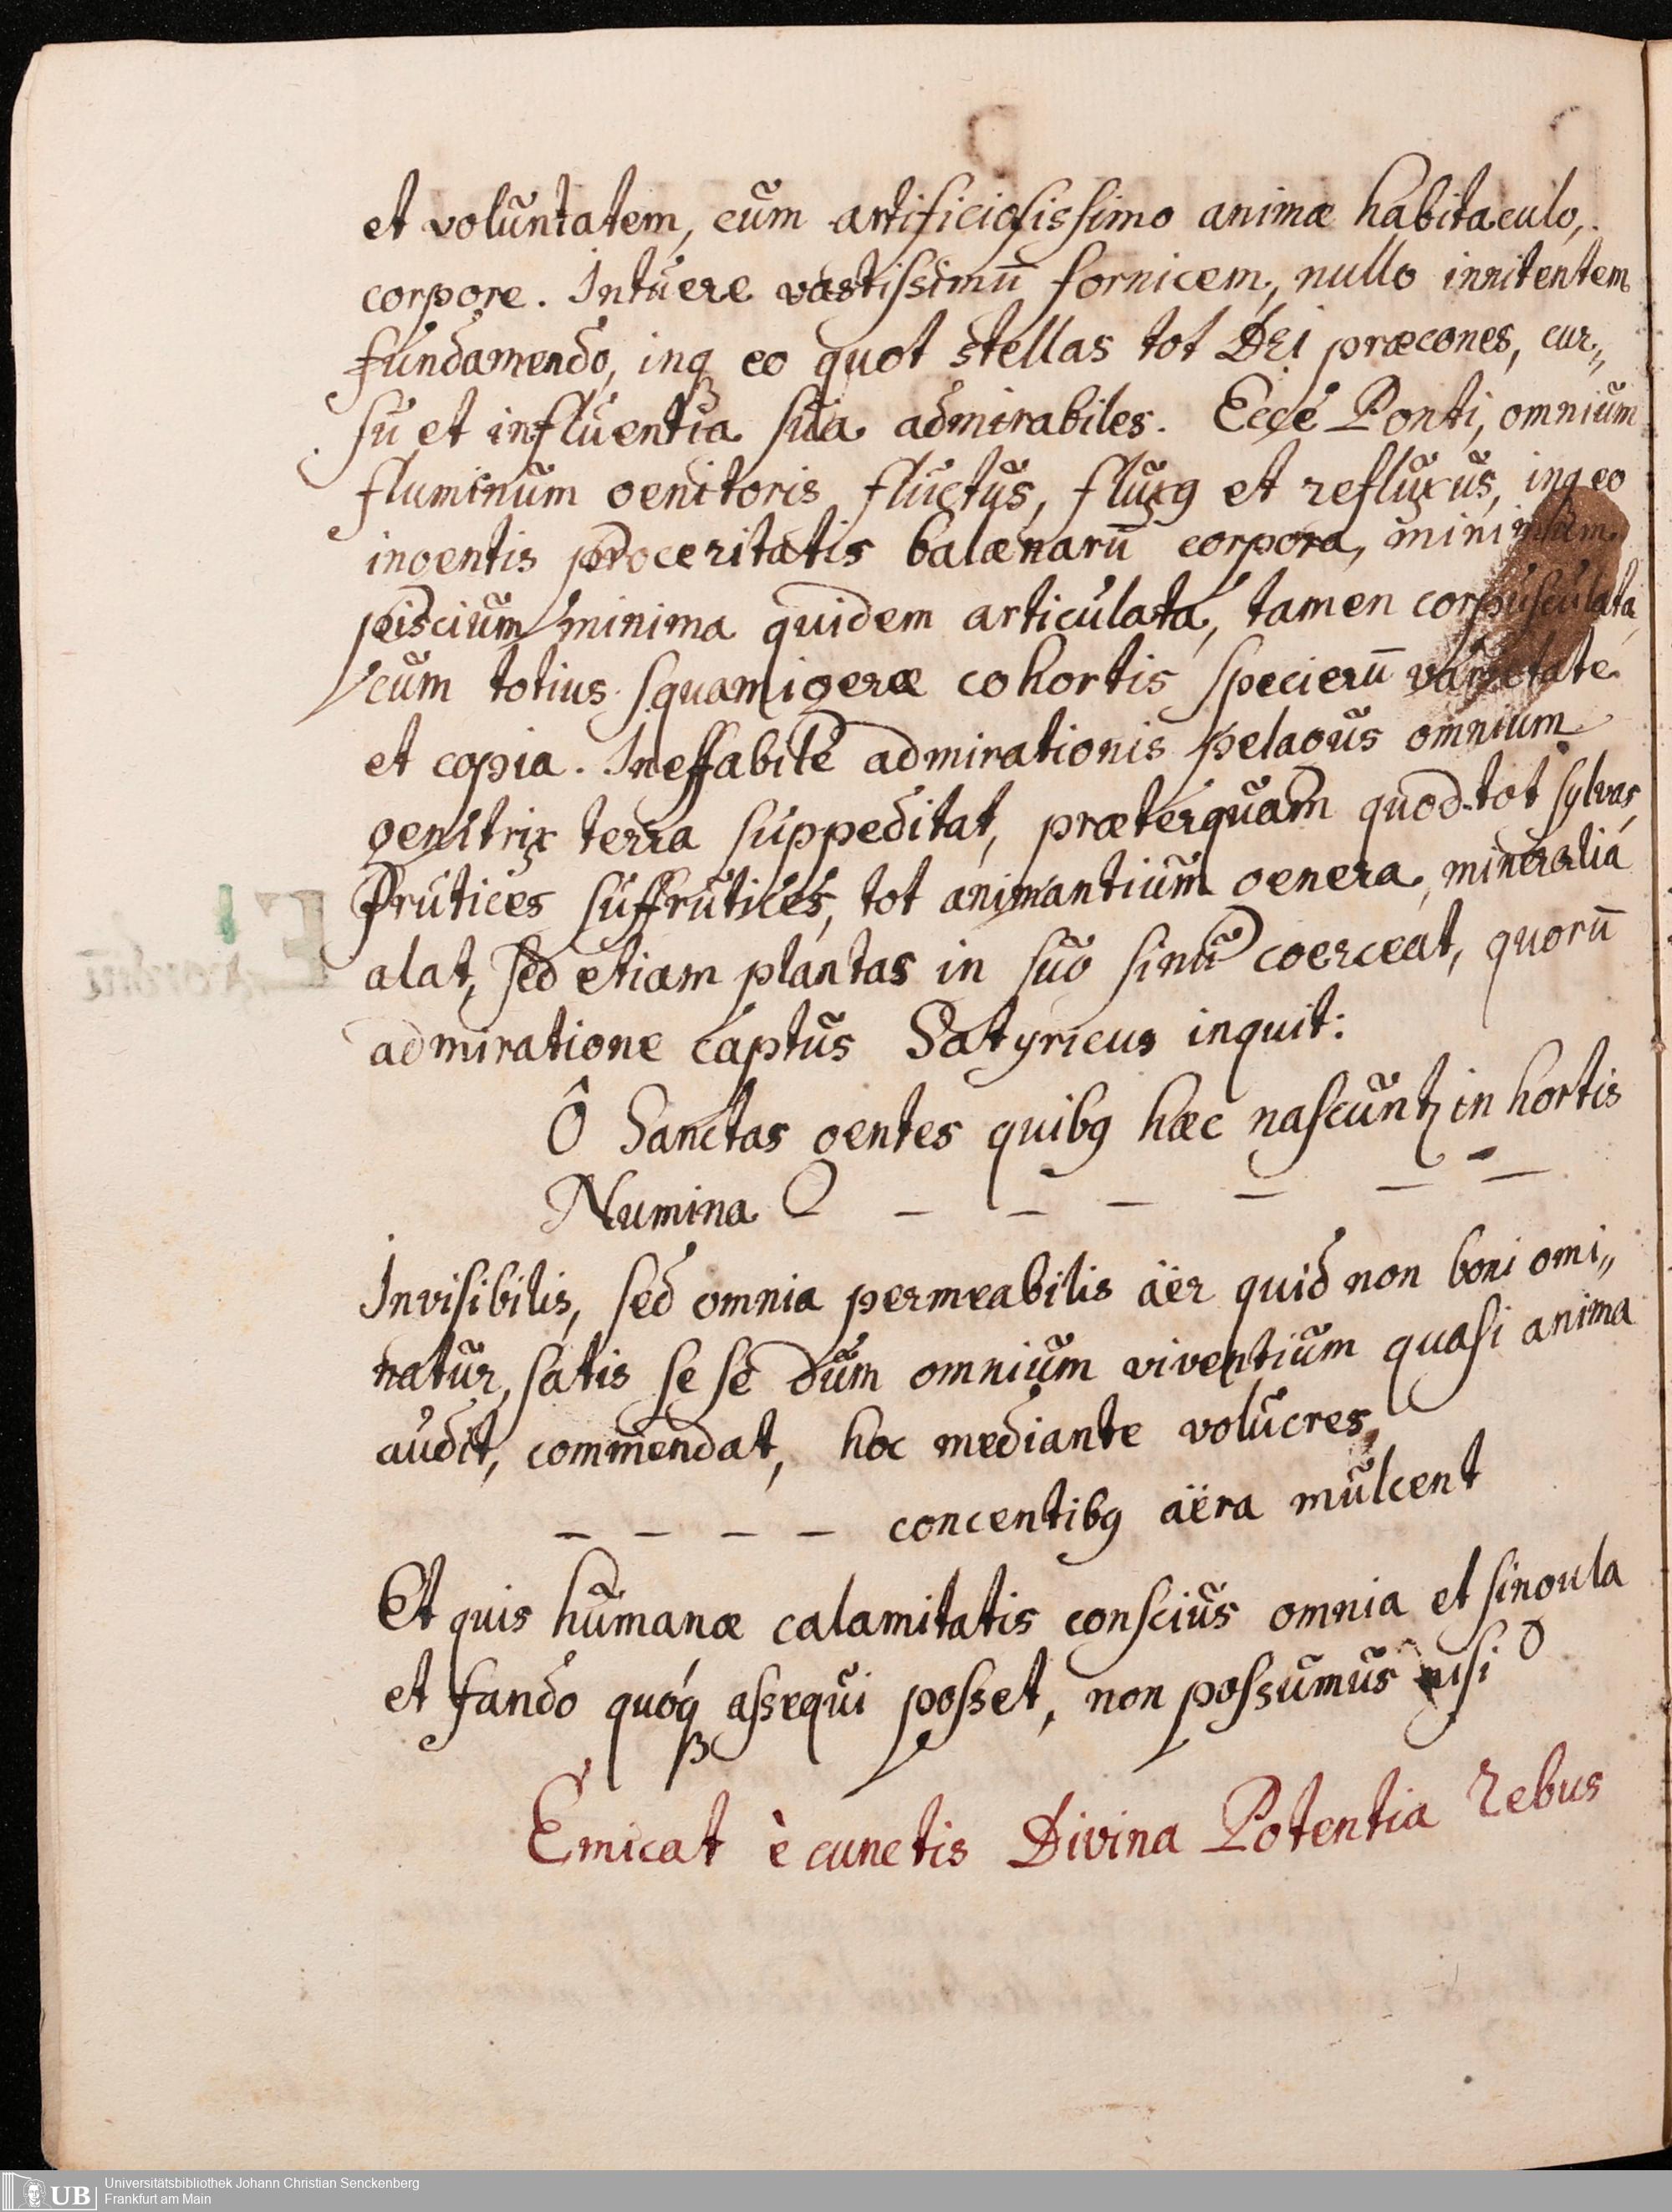 et voluntatem, cum artificiosissimo animæ habitaculo,
corpore. Intuere vastissimū fornicem, nullo innitentem
fundamendo, inq; eo quot stellas tot DEi præcones, cur„
su et influentia sua admirabiles. Ecce Ponti, omnium
fluminum genitoris fluctus, fluxꝰ et refluxus, inq; eo
ingentis proceritatis balænarū corpora, minimum
piscium minima quidem articulata, tamen corpusculata,
cum totius squamigeræ cohortis specierū varietate
et copia. Ineffabile admirationis pelagus omnium
genitrix terra suppeditat, præterquam quod tot sylvas,
frutices suffrutices, tot animantium genera, mineralia
alat, sed etiam plantas in suo sinu coerceat, quorū
admiratione captus Satyricus inquit:
Ô Sanctas gentes quibꝰ hæc nascunt in hortis
Numina _ _ _ _ _ _ _
Invisibilis, sed omnia permeabilis äër quid non boni omi„
natur, satis se se dum omnium viventium quasi anima
audit, commendat, hoc mediante volucres,
_ _ _ _ concentibꝰ äëra mulcent
Et quis humanæ calamitatis conscius omnia et singula
et fando quóq; assequi posset, non possumus nisi
Emicat è cunctis Divina Potentia rebus
UB
Universitätsbibliothek Johann Christian Senckenberg
Frankfurt am Main